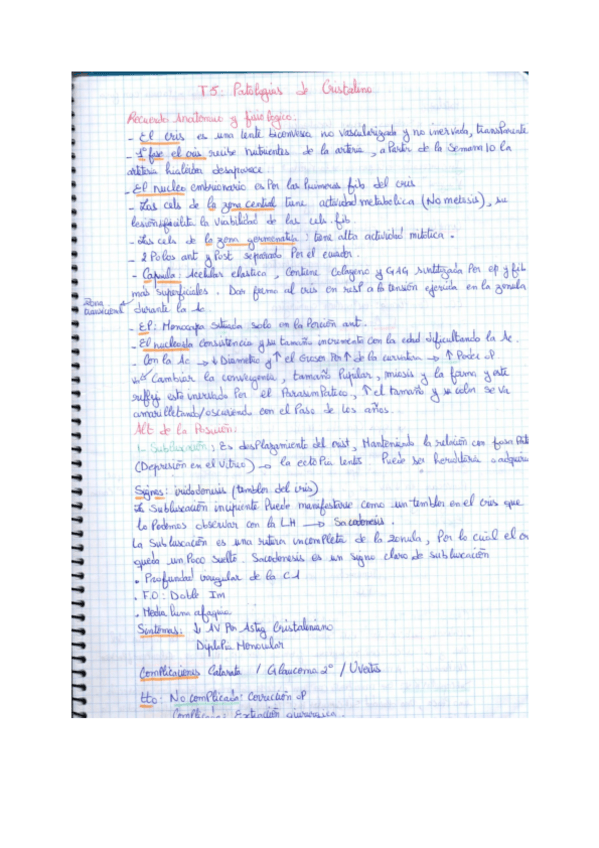 T5: Patologías de Cristalino
Recuerdo Anatómico y fisiológico.
- El cris es una lente biconvexa no vascularizada y no inervada, transparente
- 1ª fase el cris recibe nutrientes de la arteria, a Partir de la Semana 10 la
arteria hialoidea desaparece
- El nucleo embrionario es Por las primeras fib del cris
- Las cels de la zona central tiene actividad metabolica (No metosis), su
lesión facilita la viabilidad de las cels fib
- Las cels de la zona germinativa: tiene alto actividad mitotica.
- 2 Polos ant y Post separado Por el ecuador.
- Capsula: Acelular elastica, Contiene Colageno y GAG sintetizada Por ep y fib
más superficiales. Dar forma al cris en resp a la tensión ejercida en la zonula
Zona transicional
durante la Ac
- EP: Monocapa Situada solo en la Porción ant.
- El nucleo su consistencia y su tamaño incremento con la edad dificultando la Ac.
- Con la Ac → ↓ Diametro y ↑ el Grosor Por ↑ de la curvatura → ↑ Poder oP
Cambiar la convergencia, tamaño Pupilar, miosis y la forma y este
reflejo está inervado Por el Parasimpatico, ↑ el tamaño y su color se va
amarilletando/oscureciendo con el Paso de los años.
Alt de la Posición:
1. Subluxación: Es desplazamiento del crist, Manteniendo la relación con fosa Pat
(Depresión en el Vitreo) → la ectoPia lentis. Puede ser hereditária o adquiri
Signos: iridodonesis (temblor del iris)
La Subluxación incipiente Puede manifestarse como un temblor en el cris que
lo Podemos observar con la LH → Facodonesis.
La Subluxación es una rutura incompleta de la zonula, Por lo cual el cr
queda un Poco suelto. Facodonesis es un signo claro de subluxación
• Profundidad irregular de la CA
• F.O: Doble Im
• Media luna afaquia
Sintomas: ↓ AV Por Astig Cristaliniano
DiploPia Monocular
Complicaciones Catarata / Glaucoma 2º / Uveitis
tto: No complicada: Corrección oP
Complicada: Extracción quirurgica.